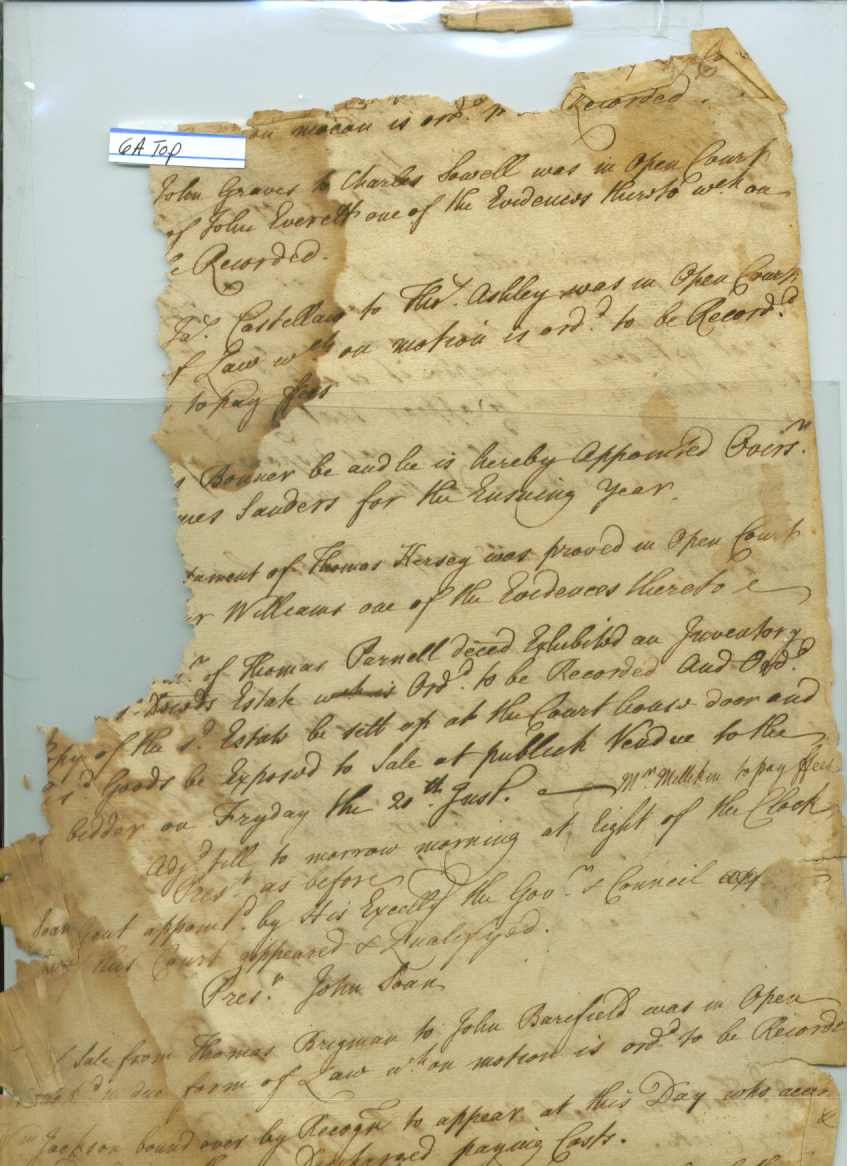 6A Top
on motion is ord.d Recorded.
John Graves to Charles Sowell was in Open Court
of John Everett one of the Evidences thereto wch on
e Recorded.
Jas. Castellaw to Thos. Ashley was in Open Court
f Law wch on motion is ord.d to be Record.d
to pay ffees
s Bonner be and he is hereby Appointed Overs.r
mes Sanders for the Ensuing Year.
tament of Thomas Hersey was proved in Open Court
Williams one of the Evidences thereto
of Thomas Parnell deced Exhibited an Inventory
Deceds Estate wch is Ord.d to be Recorded And Ord.d
opy of the s.d Estate be sett up at the Court house door and
s.d Goods be Exposed to Sale at publick Vendue to the
bidder on Fryday the 20th. Inst. Mr. Millikin to pay ffees
Adj.d till to morrow morning at Eight of the Clock
Pres.t as before
Soan Gent appoint.d by His Excelly the Gov.r & Council
this Court appeared & Qualifyed.
Pres.t John Soan
Sale from Thomas Brigman to John Barefield was in Open
in due form of Law wch on motion is ord.d to be Recorde
Jackson bound over by Recogn. to appear at this Day who
paying Costs.